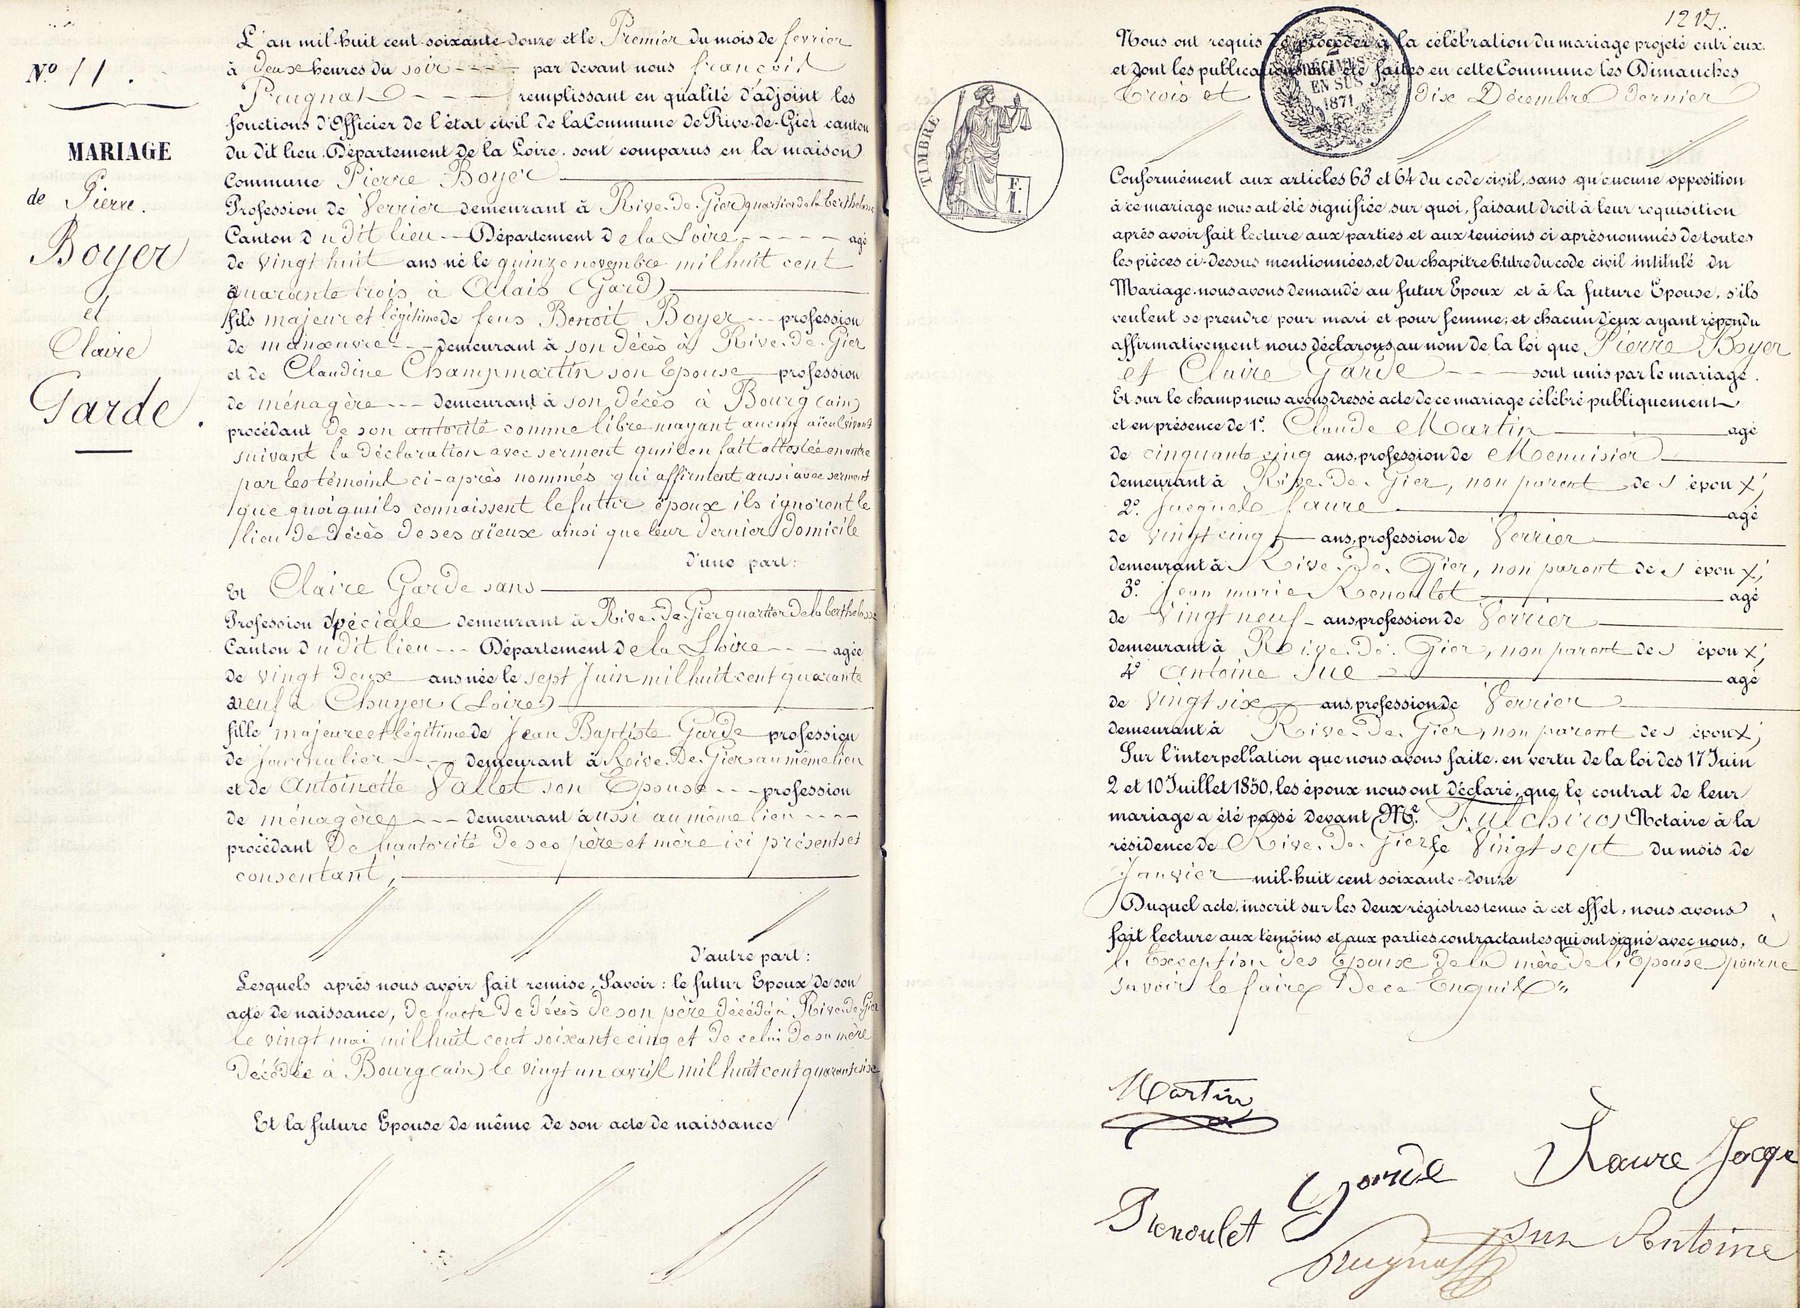 L'an mil-huit cent-soixante-douze et le Premier du mois de février
N° 11.
à deux heures du soir par devant nous françois
Prugnat remplissant en qualité d'adjoint les
fonctions d'Officier de l'état civil de la Commune de Rive-de-Gier canton
du dit lieu, Département de la Loire, sont comparus en la maison
MARIAGE
Commune Pierre Boyer
de Pierre.
Boyer
et
Claire
Garde.
Profession de Verrier demeurant à Rive-de-Gier quartier de la berthelasse
Canton du dit lieu Département de la Loire agé
de vingt huit ans né le quinze novembre mil huit cent
quarante trois à Alais (Gard)
fils majeur et légitime de feus Benoît Boyer profession
de manœuvre demeurant à son décès à Rive-de-Gier
et de Claudine Champmartin son Epouse profession
de ménagère demeurant à son décès à Bourg (ain)
procédant de son autorité comme libre nayant aucun aïeul vivant
suivant la déclaration avec serment qu'il en fait attestée en outre
par les témoins ci-après nommés qui affirment aussi avec serment
que quoiqu'ils connaissent le futur époux ils ignorent le
lieu de décès de ses aïeux ainsi que leur dernier domicile
d'une part:
Et Claire Garde sans
Profession spéciale demeurant à Rive-de-Gier quartier de la berthelasse
Canton du dit lieu Département de la Loire agée
de vingt deux ans née le sept Juin mil huit cent quarante
neuf à Chuyer (Loire)
fille majeure et légitime de Jean Baptiste Garde profession
de Journalier demeurant à Rive-De-Gier au même lieu
et de Antoinette Vallet son Epouse profession
de ménagère demeurant aussi au même lieu
procédant De l'autorité de ses père et mère ici présents et
consentant,
D'autre part:
Lesquels après nous avoir fait remise, Savoir: le futur Epoux de son
acte de naissance, de l'acte de décès de son père décédé à Rive-de-Gier
le vingt mai mil huit cent soixante cinq et de celui de sa mère
décédée à Bourg (ain) le vingt un avril mil huit cent quarante six
Et la future Epouse de même de son acte de naissance
1217.
Nous ont requis de procéder à la célébration du mariage projeté entr'eux
et dont les publications ont été faites en cette Commune les Dimanches
trois et dix Décembre dernier
2
DÉCIMES
EN SUS
1871
TIMBRE
F. I.
Conformément aux articles 63 et 64 du code civil, sans qu'aucune opposition
à ce mariage nous ait été signifiée sur quoi, faisant droit à leur réquisition
après avoir fait lecture aux parties et aux témoins ci après nommés de toutes
les pièces ci-dessus mentionnées, et du chapitre 6 titre du code civil intitulé du
Mariage, nous avons demandé au futur Epoux et à la future Epouse, s'ils
veulent se prendre pour mari et pour femme; et chacun d'eux ayant répondu
affirmativement nous déclarons au nom de la loi que Pierre Boyer
et Claire Garde sont unis par le mariage.
Et sur le champ nous avons dressé acte de ce mariage célébré publiquement
et en présence de 1°. Claude Martin agé
de cinquante cinq ans, profession de Menuisier
demeurant à Rive-de-Gier, non parent des époux;
2°. Jacques faure agé
de vingt cinq ans, profession de Verrier
demeurant à Rive-De-Gier, non parent des époux;
3°. Jean marie Renoulet agé
de Vingt neuf ans, profession de Verrier
demeurant à Rive-de-Gier, non parent des époux;
4° Antoine Sue agé
de vingt six ans, profession de Verrier
demeurant à Rive-de-Gier, non parent des époux;
Sur l'interpellation que nous avons faite, en vertu de la loi des 17 Juin
2 et 10 Juillet 1850, les époux nous ont déclaré, que le contrat de leur
mariage a été passé devant Me. Fulchiron Notaire à la
résidence de Rive-De-Gier le vingt sept du mois de
Janvier mil-huit cent soixante-douze
Duquel acte, inscrit sur les deux régistres tenus à cet effet, nous avons
fait lecture aux témoins et aux parties contractantes qui ont signé avec nous, à
l'Exception des Epoux de la mère de l'Epouse pour ne
savoir le faire De ce Enquis
Martin
Garde
Faure Jacqe
Renoulet
Sue Antoine
Prugnat